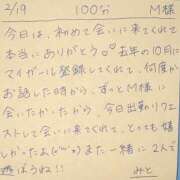 2/19 100分 M様
今日は、初めて会いに来てくれて
本当にありがとう♡去年の10月に
マイガール登録してくれて、何度か
お話した時から、ずっとM様に
会いたかったから、今日出勤リクエ
ストして会いに来てくれて、とっても嬉
しかったよ(´ω`)また一緒に2人で
遊ぼうね!! みと